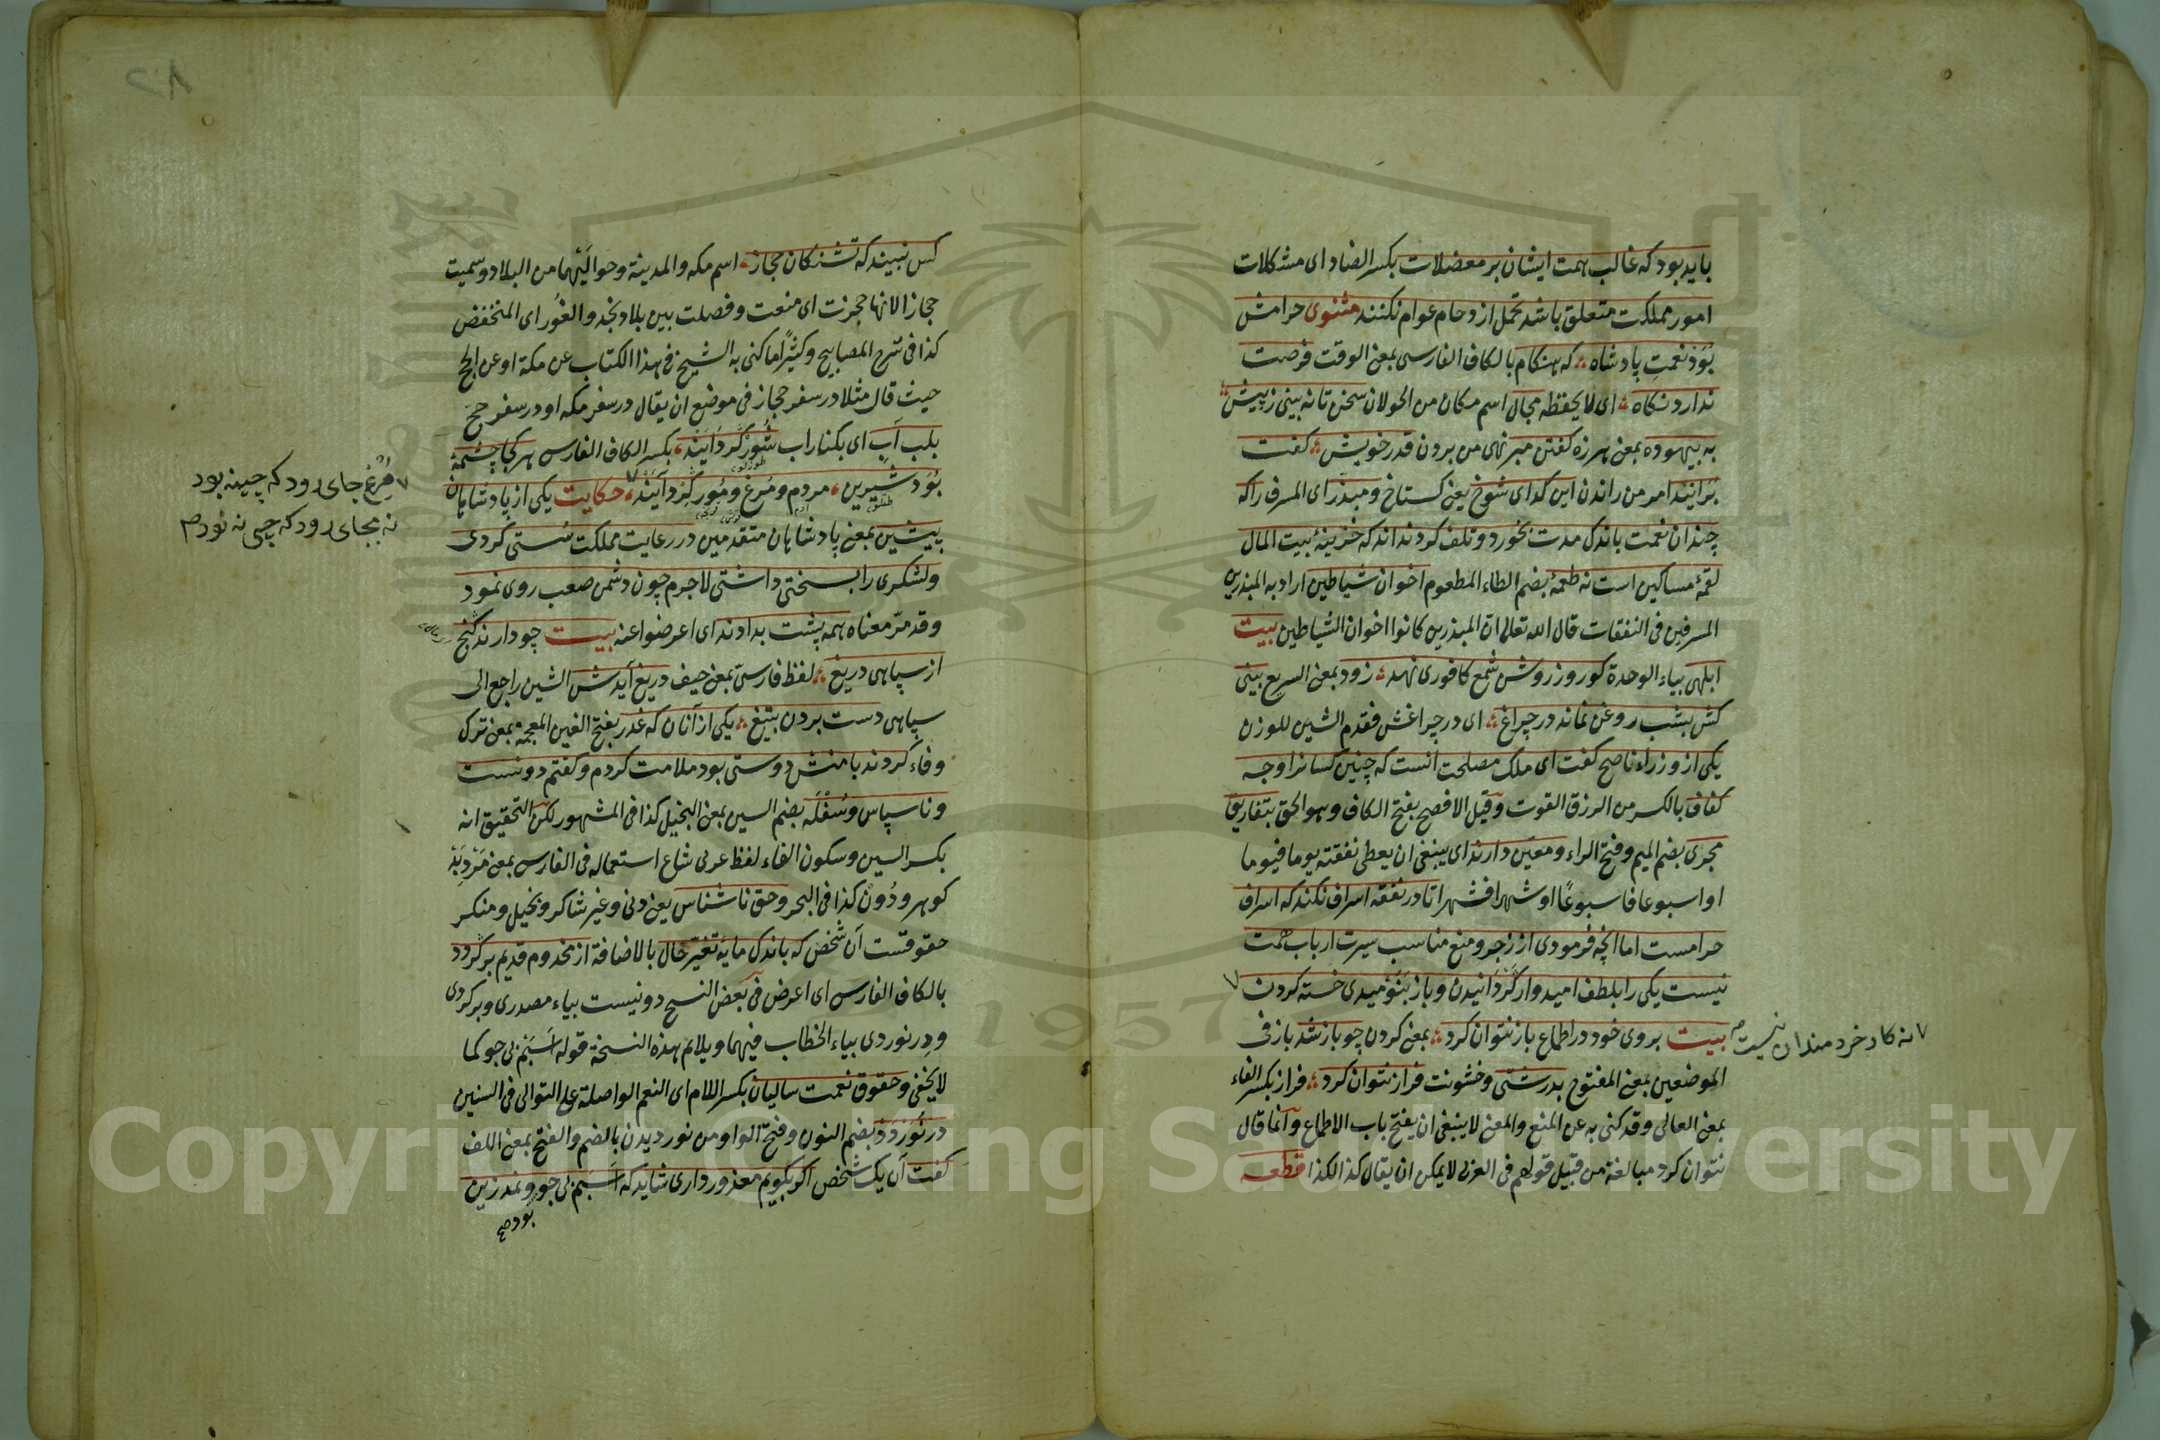 باید بود که غالب همت ایشان بر معضلات بکسر الضاد ای مشکلات
امور مملکت متعلق باشد تحمل ازدحام عوام نکنند مثنوی حرامش
بود نعمت پادشاه که هنکام بالکاف الفارسی بمعنی الوقت فرصت
ندارد نکاه ای لا یحفظه مجال اسم مکان من الجولان سخن تا نه بینی ز پیش
به بیهوده بمعنی هرزه کفتن مبر نهی من بردن قدر خویش کفت
برانید امر من راندن این کدای شوخ یعنی کستاخ و مبذر ای المسرف را که
چندان نعمت باندک مدت بخورد و تلف کرد نداند که خزینهٔ بیت المال
لقمهٔ مساکین است نه طعمهٔ بضم الطاء المطعوم اخوان شیاطین اراد به المبذرین
المسرفین فی النفقات قال الله تعالی ان المبذرین کانوا اخوان الشیاطین بیت
ابلهی بیاء الوحدة کو روز روشن شمع کافوری نهد زود بمعنی السریع بینی
کش بشب روغن نماند در چراغ ای در چراغش فقدم الشین للوزن
یکی از وزراء ناصح کفت ای ملک مصلحت انست که چنین کسانرا وجه
کفاف بالکسر من الرزق القوت وقیل الافصح بفتح الکاف وهو الحق بتفاریق
مجری بضم المیم وفتح الراء ومعین دارند ای ینبغی ان یعطی نفقته یوما فیوما
او اسبوعا فاسبوعًا او شهرا فشهرا تا در نفقه اسراف نکند که اسراف
حرامست اما انچه فرمودی از زجر ومنع مناسب سیرت ارباب همت
نیست یکی را بلطف امیدوار کردانیدن و باز بنومیدی خسته کردن
نه کار خردمندان نیست صح
بیت بروی خود در اطماع باز نتوان کرد بمعنی کردن چو باز شد باز فی
الموضعین بمعنی المفتوح بدرشتی وخشونت فراز نتوان کرد فراز بکسر الفاء
بمعنی العالی وقد کنی به عن المنع والمعنی لا ینبغی ان یفتح باب الاطماع وانما قال
نتوان کرد مبالغة من قبیل قولهم فی العربی لا یمکن ان یقال کذا لکذا قطعه
کس نبیند که تشنکان حجاز اسم مکه والمدینة وحوالیهما من البلاد وسمیت
حجازا لانها حجزت ای منعت وفصلت بین بلاد نجد والغور ای المنخفض
کذا فی شرح المصابیح وکثیرًا ما کنی به الشیخ فی هذا الکتاب عن مکة او عن الحج
حیث قال مثلا در سفر حجاز فی موضع ان یقال در سفر مکه او در سفر حج
بلب آب ای بکنار آب شور کرد آیند بکسر الکاف الفارسی هر کجا چشمهٔ
بود شیرین مردم و مرغ و مور کرد آیند حکایت یکی از پادشاهان
مرغ جای رود که چینه بود
نه بجای رود که چی نه بود م
پیشین بمعنی پادشاهان متقدمین در رعایت مملکت سستی کردی
ولشکری را بسختی داشتی لاجرم چون دشمن صعب روی نمود
وقد مرّ معناه همه پشت بدادند ای اعرضوا عنه بیت چو دارند کنج
از سپاهی دریغ لفظ فارسی بمعنی حیف دریغ آیدش الشین راجع الی
سپاهی دست بردن بتیغ یکی از آنان که غدر بفتح الغین المعجمة بمعنی ترک
وفاء کردند با منش دوستی بود ملامت کردم وکفتم دونست
و ناسپاس وسفله بضم السین بمعنی البخیل کذا فی المشهور لکن التحقیق انه
بکسر السین وسکون الفاء لفظ عربی شاع استعماله فی الفارسی بمعنی مرد بد
کوهر ودون کذا فی البحر وحق ناشناس یعنی دنی وغیر شاکر وبخیل ومنکر
حقوقست آن شخص که باندک مایه تغیر حال بالاضافة از مخدوم قدیم برکردد
بالکاف الفارسی ای اعرض فی بعض النسخ دونیست بیاء مصدری وبرکردی
ودر نوردی بیاء الخطاب فیهما ویلایم هذه النسخة قوله اسبم بی جو کما
لا یخفی وحقوق نعمت سالیان بکسر اللام ای النعم الواصلة علی التوالی فی السنین
در نوردد بضم النون وفتح الواو من نوردیدن بالضم والفتح بمعنی اللف
کفت آن یک شخص اکر بکویم معذور داری شاید که اسبم بی جو ونمد زین
بود صح
Copyright © King Saud University
1957